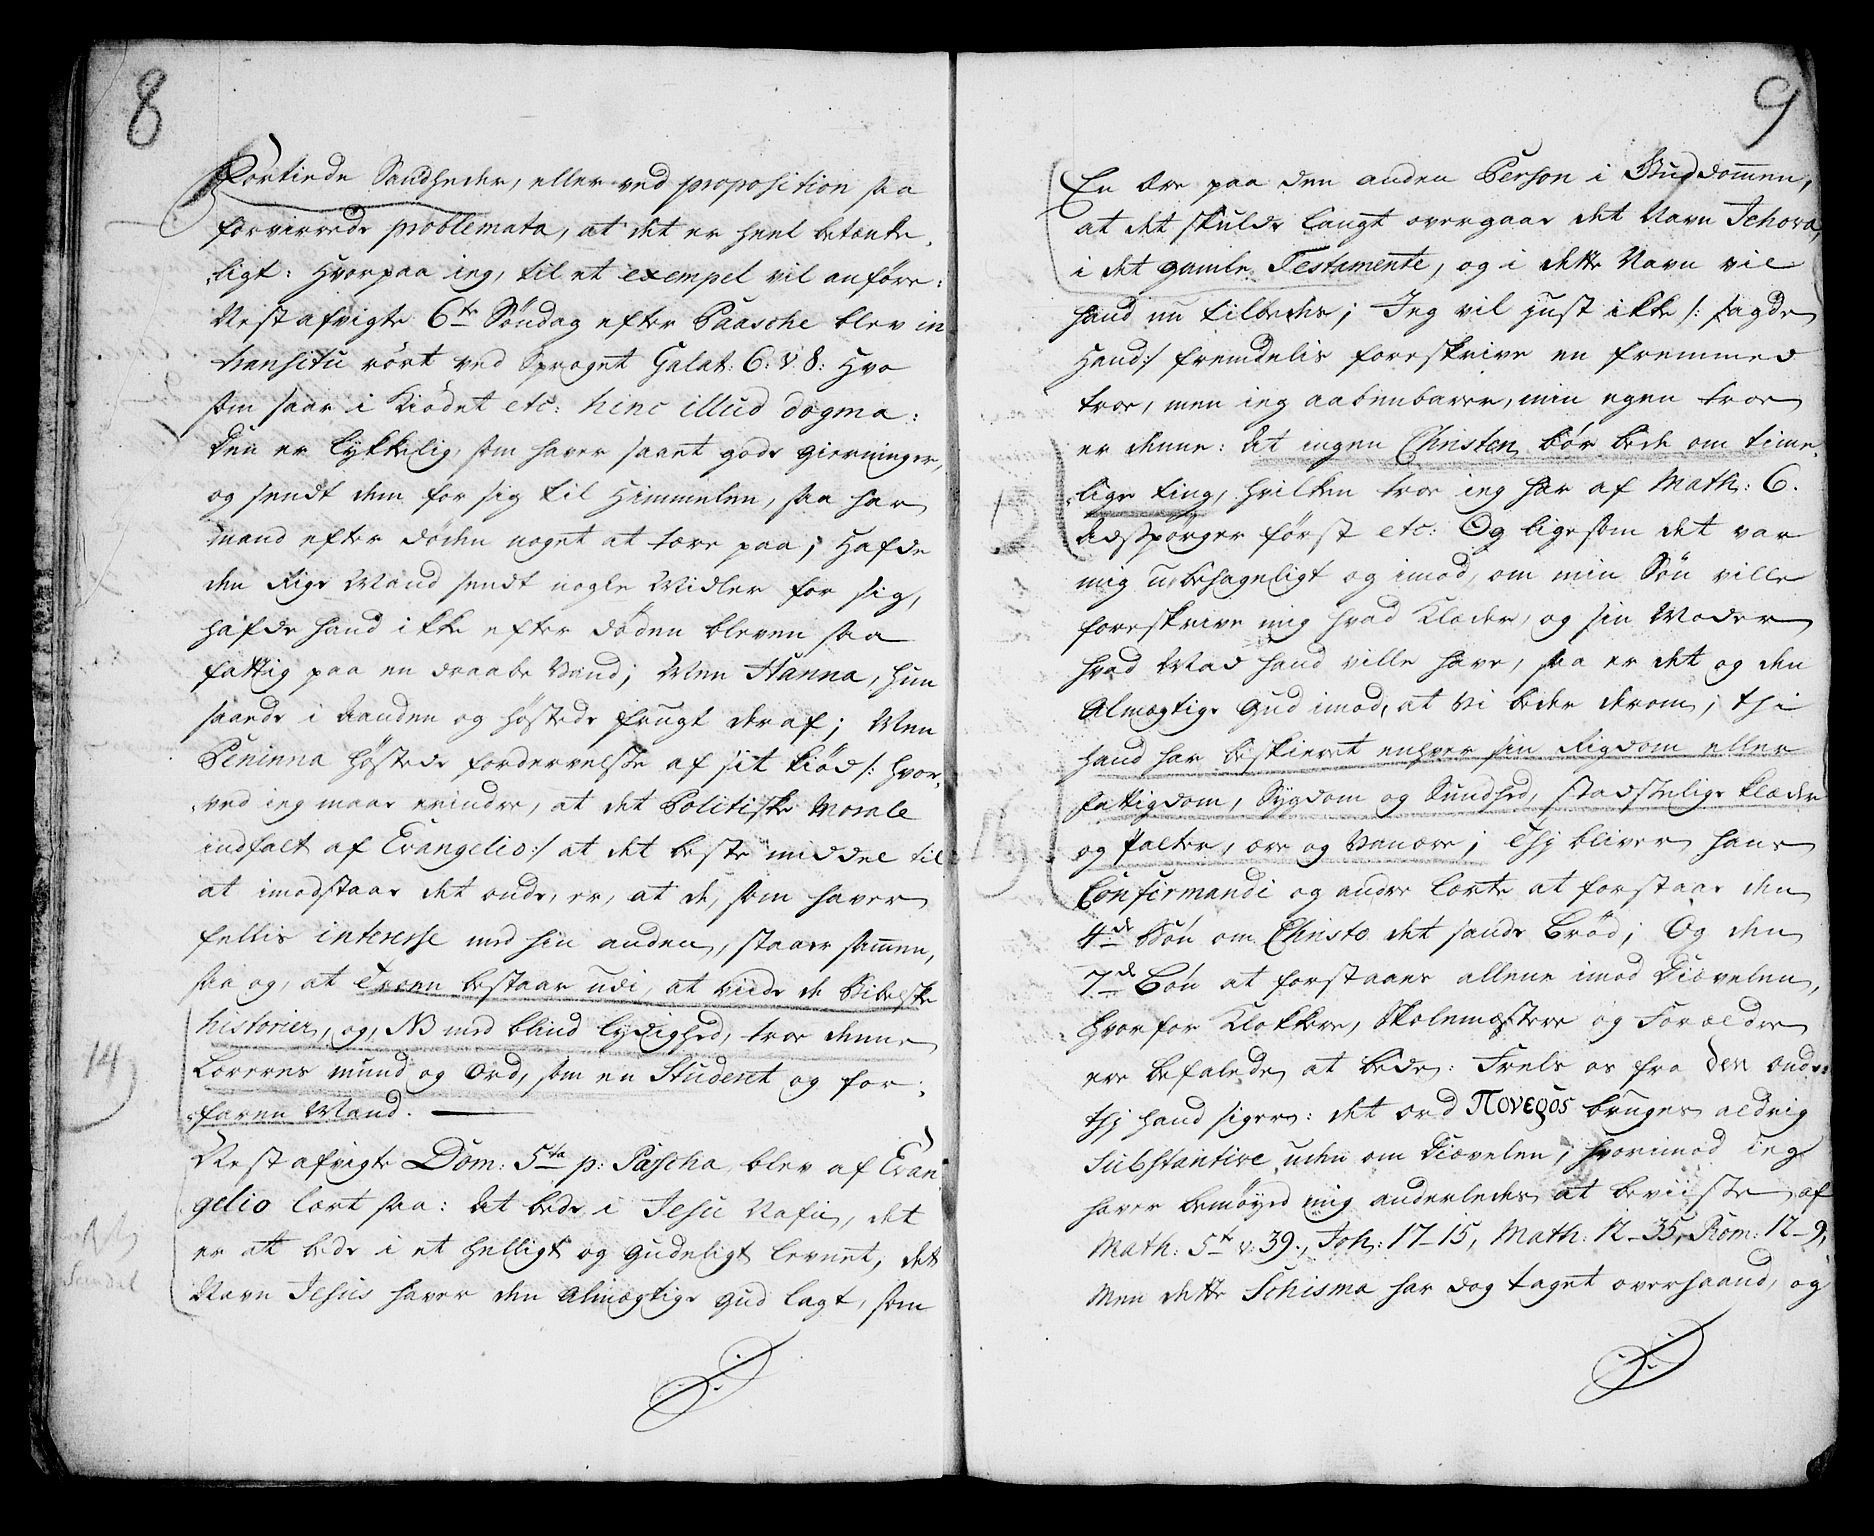 8
Fortiede Sandheder, eller ved proposition saa
forvirrede problemata, at det er heel betænke,
ligt: Hvorpaa ieg, til et exempel vil anføre:
Nest afvigte 6te Søndag efter Paasche blev in
transitu rørt ved Sproget Galat: 6: v 8: Hvo
som saar i Kiødet etc: hinc illud dogma:
Den er lykkelig, som haver saaet gode gierninger,
og sendt dem for sig til Himmelen, saa har
mand efter døden noget at tære paa; Hafde
den Rige Mand sendt nogle Midler for sig,
hafde hand ikke efter døden bleven saa
fattig paa en draabe Vand; Men Hanna, hun
saaede i Aanden og høstede frugt deraf; Men
Peninna høstede fordervelse af sit kiød /: hvor,
ved ieg maae erindre, at det Politiske Morale
indfalt af Evangelio :/ at det beste middel til
at imodstaae det onde, er, at de, som haver
fellis interesse med hin anden, staaer sammen,
saa og, at Troen bestaar udi, at viide de Bibelske
historier, og, NB med blind lydighed, troe denne
Læreres mund og Ord, som en Studeret og for,
faren Mand.
14
Nest afvigte Dom: 5ta p: Pascha blev af Evan
gelio lært saa: At bede i Jesu Nafn, det
er at bede i et helligt og gudeligt levnet, det
Navn Jesus haver den Almægtige Gud lagt, som
9
En Ære paa den anden Person i Guddommen,
at det skulde langt overgaae det Navn Jehova,
i det gamle Testamente, og i dette Navn vil
hand nu tilbedes; Jeg vil just ikke /: sagde
Hand :/ fremdelis foreskrive en fremmed
troe, men ieg aabenbarer, min egen troe
er denne: At ingen Christen bør bede om time,
lige ting, hvilken troe ieg har af Math: 6.
Adspørger først etc: Og ligesom det var
mig u-behageligt og imod, om min Søn ville
foreskrive mig hvad Klæder, og sin Moder
hvad Mad hand ville have, saa er det og den
Almægtige Gud imod, at Vi beder derom; thi
hand har beskieret enhver sin Rigdom eller
fattigdom, Sygdom og Sundhed, stadselige klæder
og Palter, ære og Vanære; Thj bliver hans
Confirmandi og andre lærte at forstaae den
4de Bøn om Christo det sande Brød; Og den
7de Bøn at forstaaes allene imod Diævelen,
hvorfor Klokkere, Skolemæstere og Forældre
ere befalede at bede: Frels os fra den onde:
thj hand siger: det ord Πονεgος bruges aldrig
Substantive uden om Diævelen; hvorimod ieg
haver bemøyed mig anderledes at beviise af
Math: 5t v: 39., Joh: 17-15, Math: 12-35, Rom: 12-9,
Men dette Schisma har dog taget overhaand, og